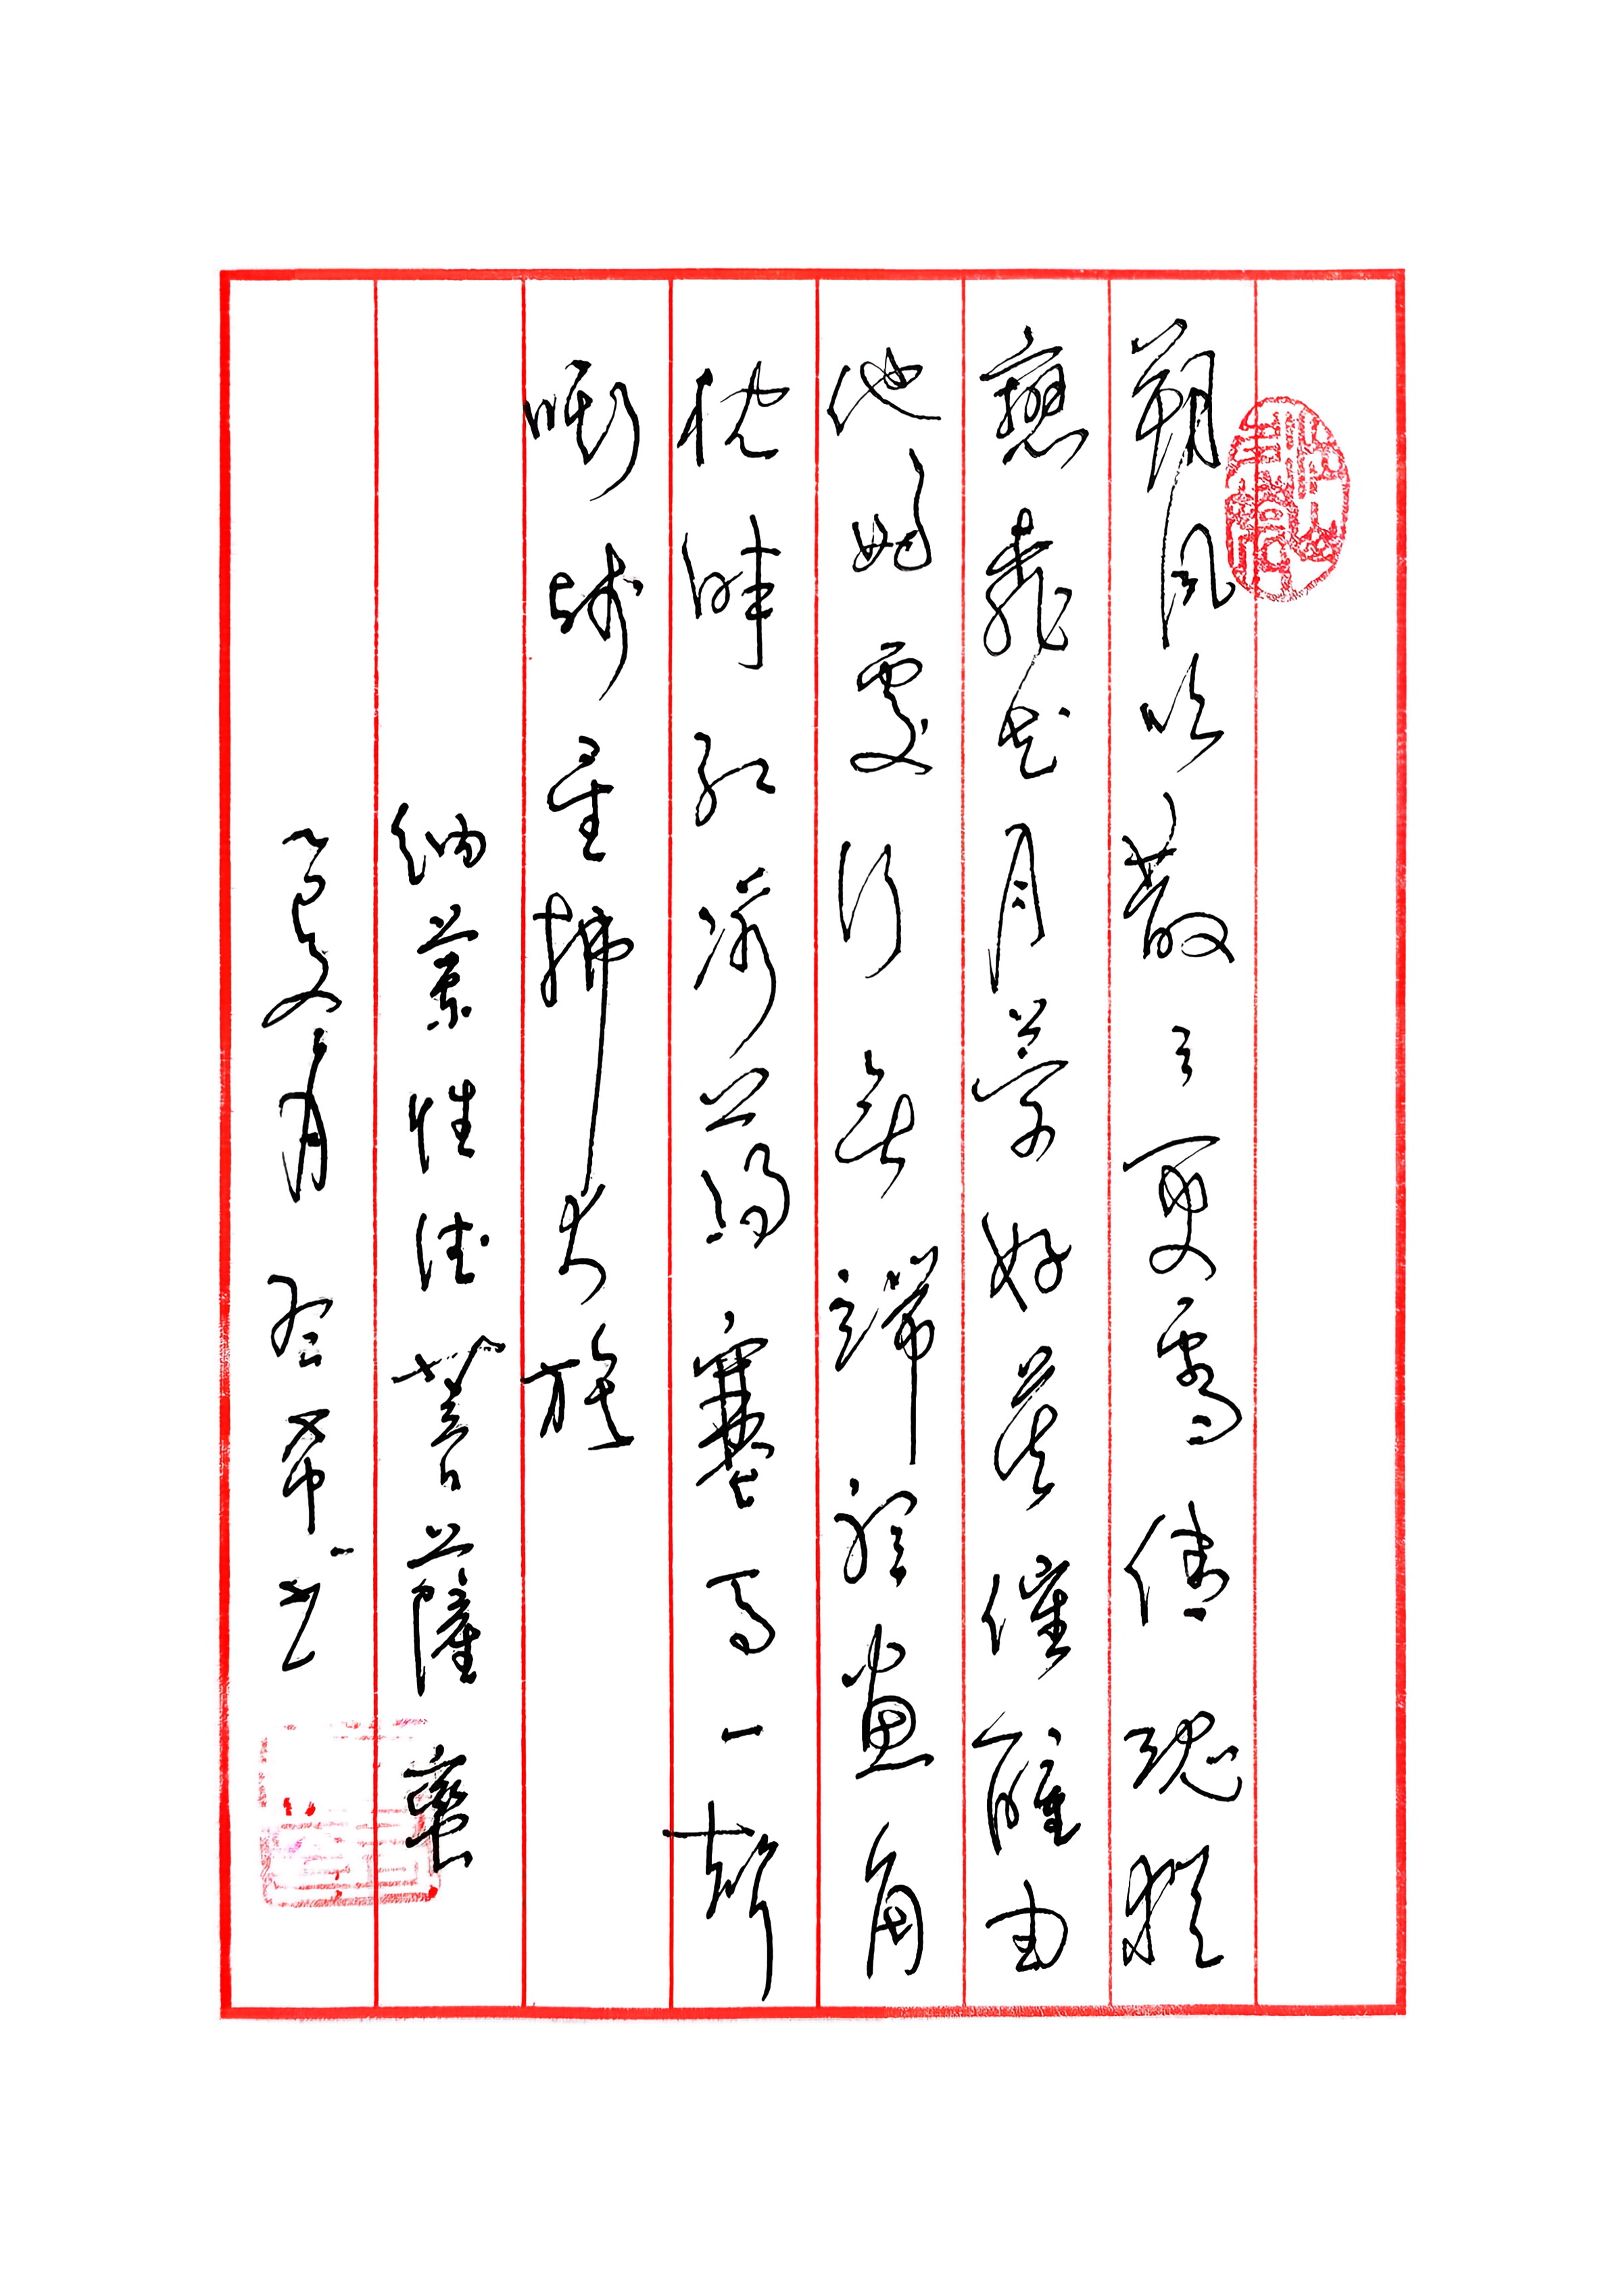 朔風吹散三更雪倩魂猶
戀桃花月夢好莫催醒由
他好處行無端聽畫角
枕畔紅冰薄塞馬一聲
嘶殘星拂大旗
納蘭性德菩薩蠻
乙巳夏月希书